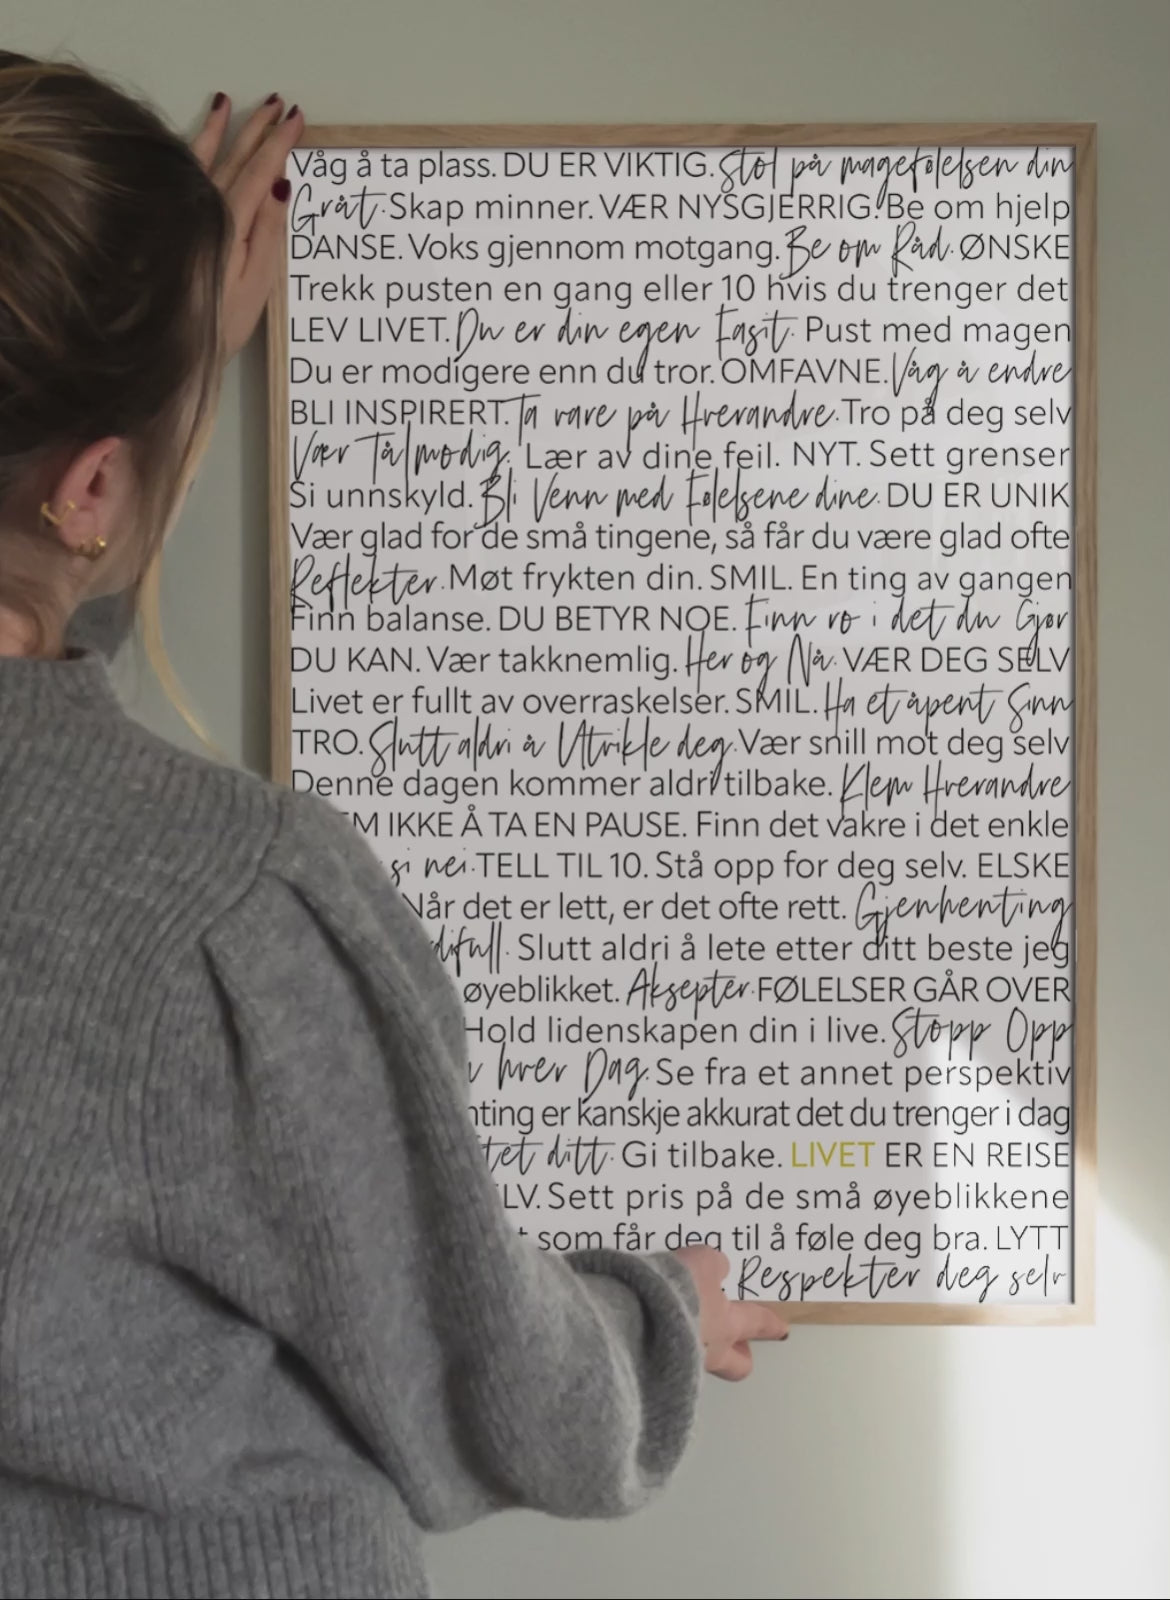 Våg å ta plass. DU ER VIKTIG. Stol på magefølelsen din
Gråt. Skap minner. VÆR NYSGJERRIG. Be om hjelp
DANSE. Voks gjennom motgang. Be om Råd. ØNSKE
Trekk pusten en gang eller 10 hvis du trenger det
LEV LIVET. Du er din egen Fasit. Pust med magen
Du er modigere enn du tror. OMFAVNE. Våg å endre
BLI INSPIRERT. Ta vare på Hverandre. Tro på deg selv
Vær Tålmodig. Lær av dine feil. NYT. Sett grenser
Si unnskyld. Bli Venn med Følelsene dine. DU ER UNIK
Vær glad for de små tingene, så får du være glad ofte
Reflekter. Møt frykten din. SMIL. En ting av gangen
Finn balanse. DU BETYR NOE. Finn ro i det du Gjør
DU KAN. Vær takknemlig. Her og Nå. VÆR DEG SELV
Livet er fullt av overraskelser. SMIL. Ha et åpent Sinn
TRO. Slutt aldri å Utvikle deg. Vær snill mot deg selv
Denne dagen kommer aldri tilbake. Klem Hverandre
IKKE Å TA EN PAUSE. Finn det vakre i det enkle
si nei. TELL TIL 10. Stå opp for deg selv. ELSKE
Når det er lett, er det ofte rett. Gjenhenting
Slutt aldri å lete etter ditt beste jeg
øyeblikket. Aksepter. FØLELSER GÅR OVER
Hold lidenskapen din i live. Stopp Opp
hver Dag. Se fra et annet perspektiv
er kanskje akkurat det du trenger i dag
ditt. Gi tilbake. LIVET ER EN REISE
Sett pris på de små øyeblikkene
som får deg til å føle deg bra. LYTT
Respekter deg selv